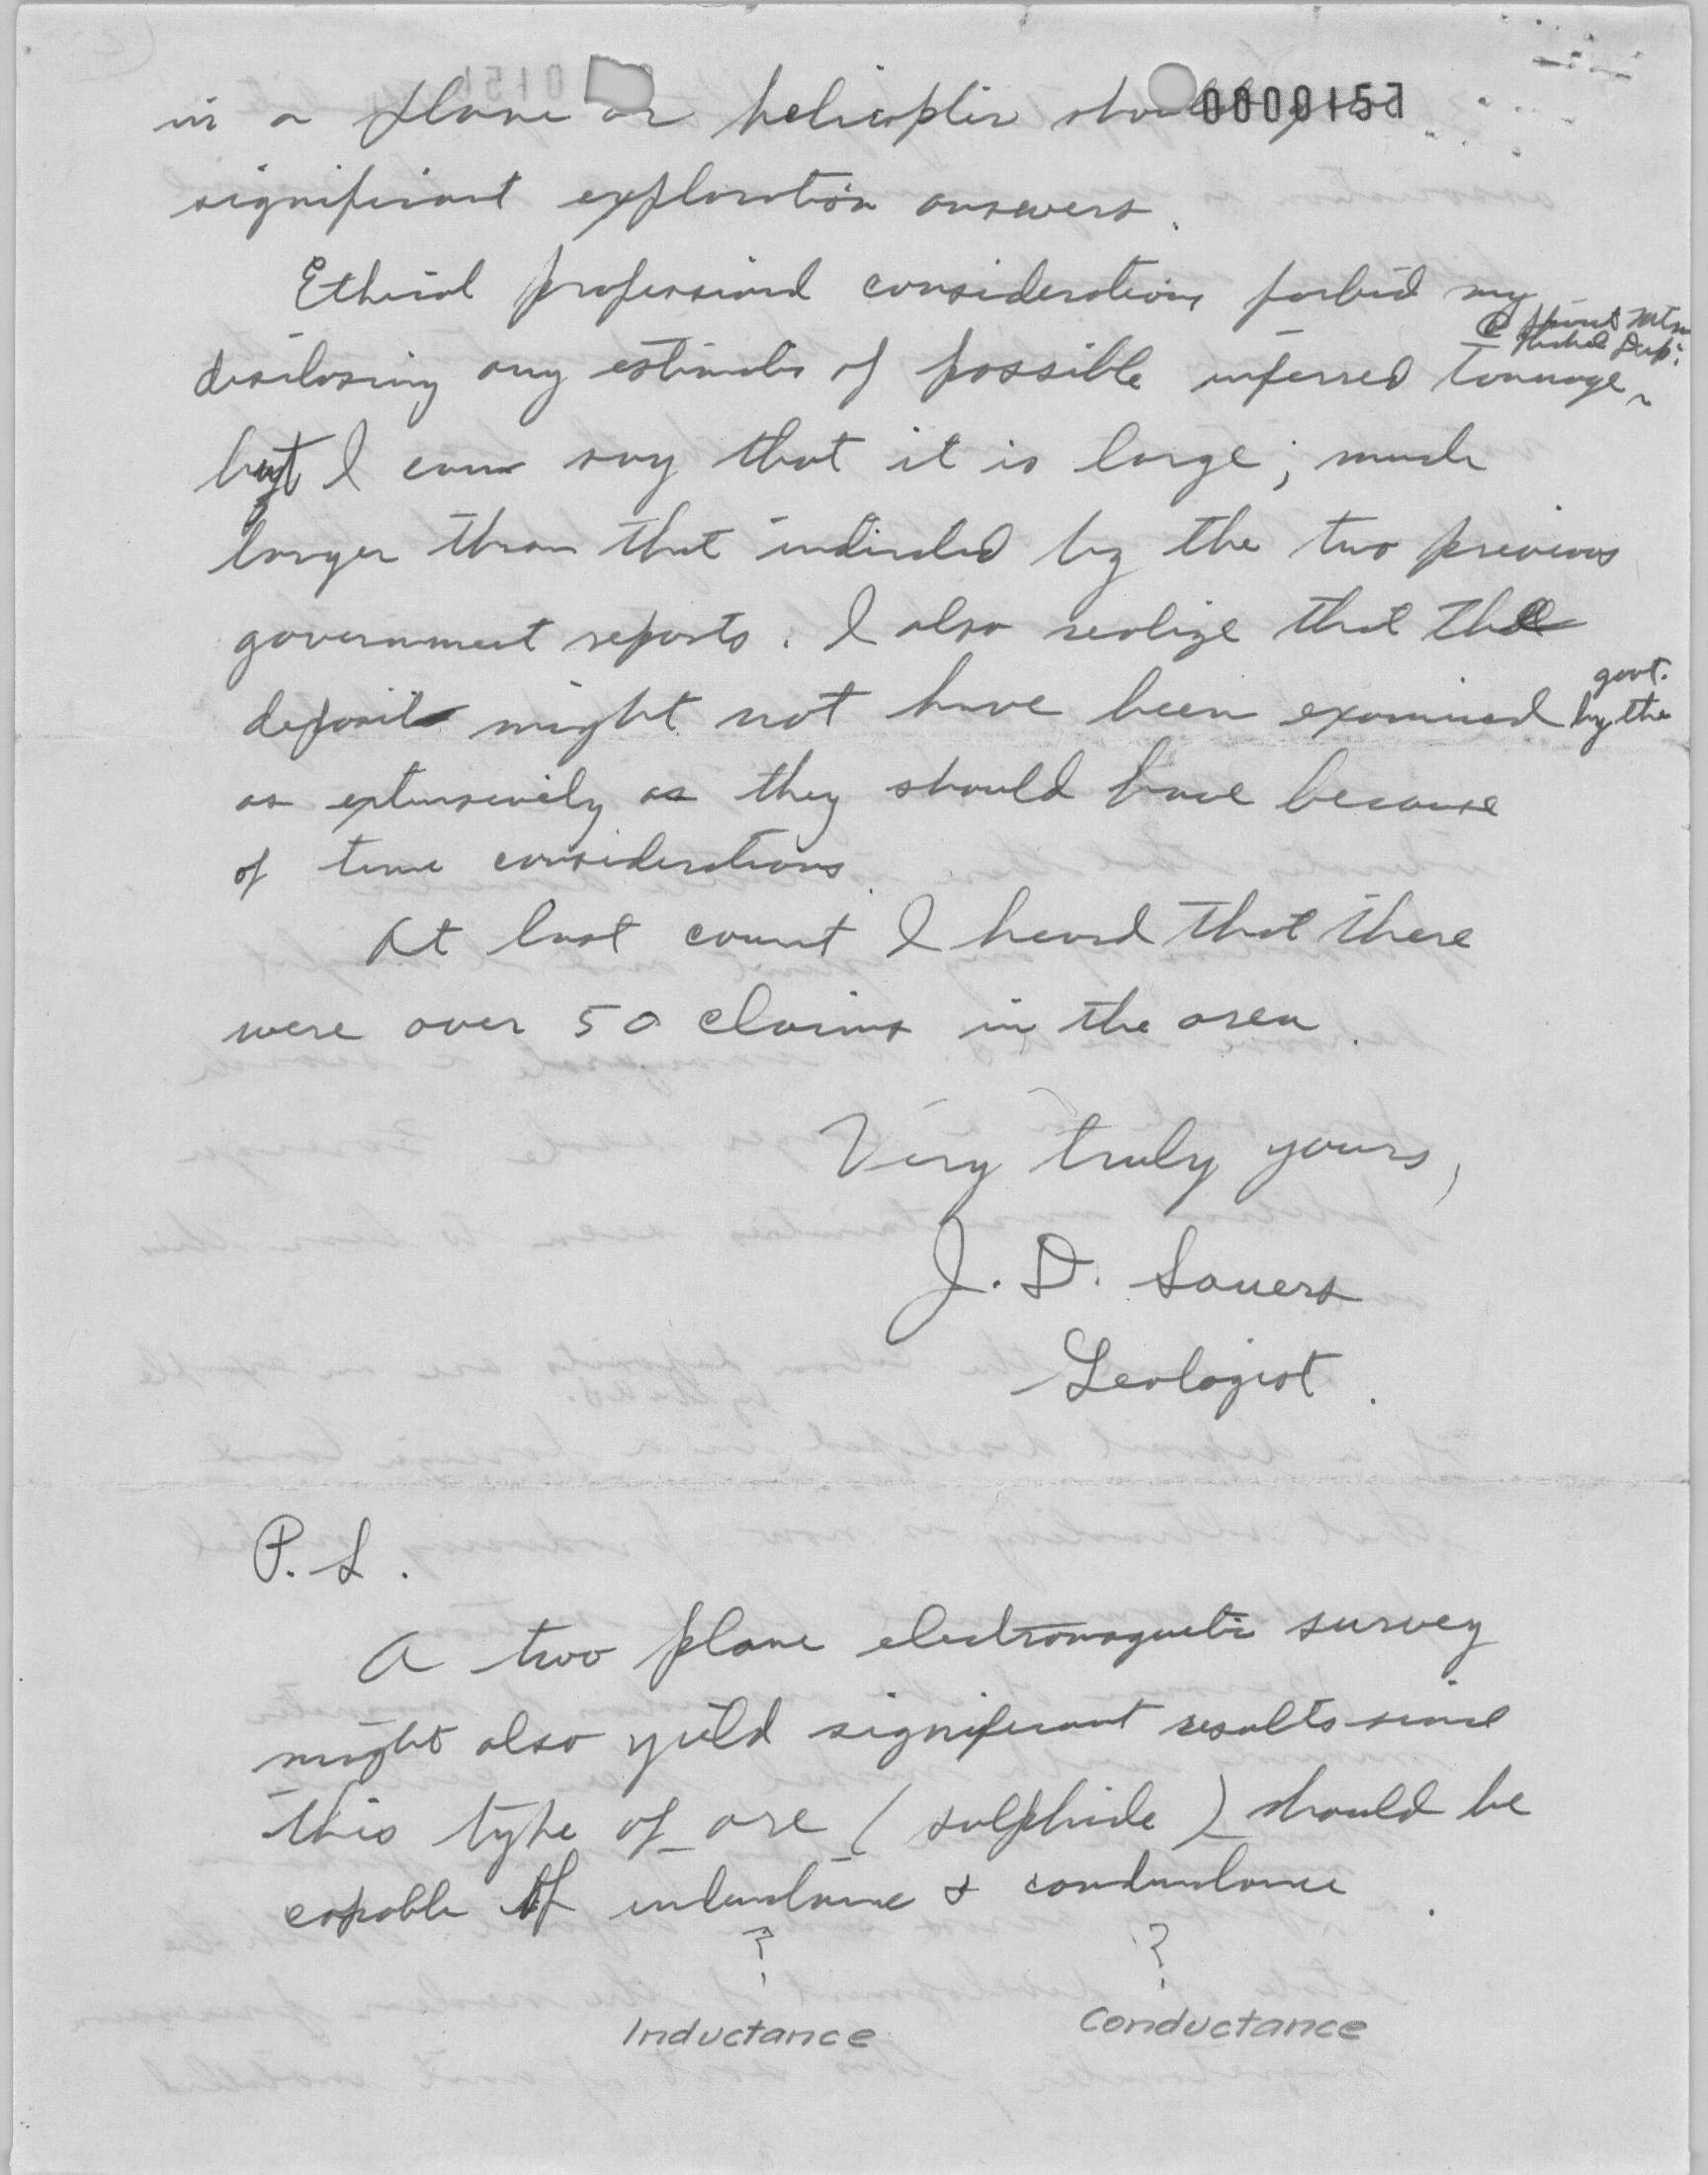 0000157
in a plane or helicopter should yield
significant exploration answers.
Ethical professional considerations forbid my
disclosing any estimates of possible inferred tonnage
@ Spirit Mtn Nickel Dep.
but I can say that it is large; much
larger than that indicated by the two previous
government reports. I also realize that the
deposit might not have been examined by the govt.
as extensively as they should have because
of time considerations.
At last count I heard that there
were over 50 claims in the area.
Very truly yours,
J. D. Sauers
Geologist.
P.S.
A two plane electromagnetic survey
might also yield significant results since
this type of ore (sulphide) should be
capable of inductance & conductance.
? ?
Inductance Conductance